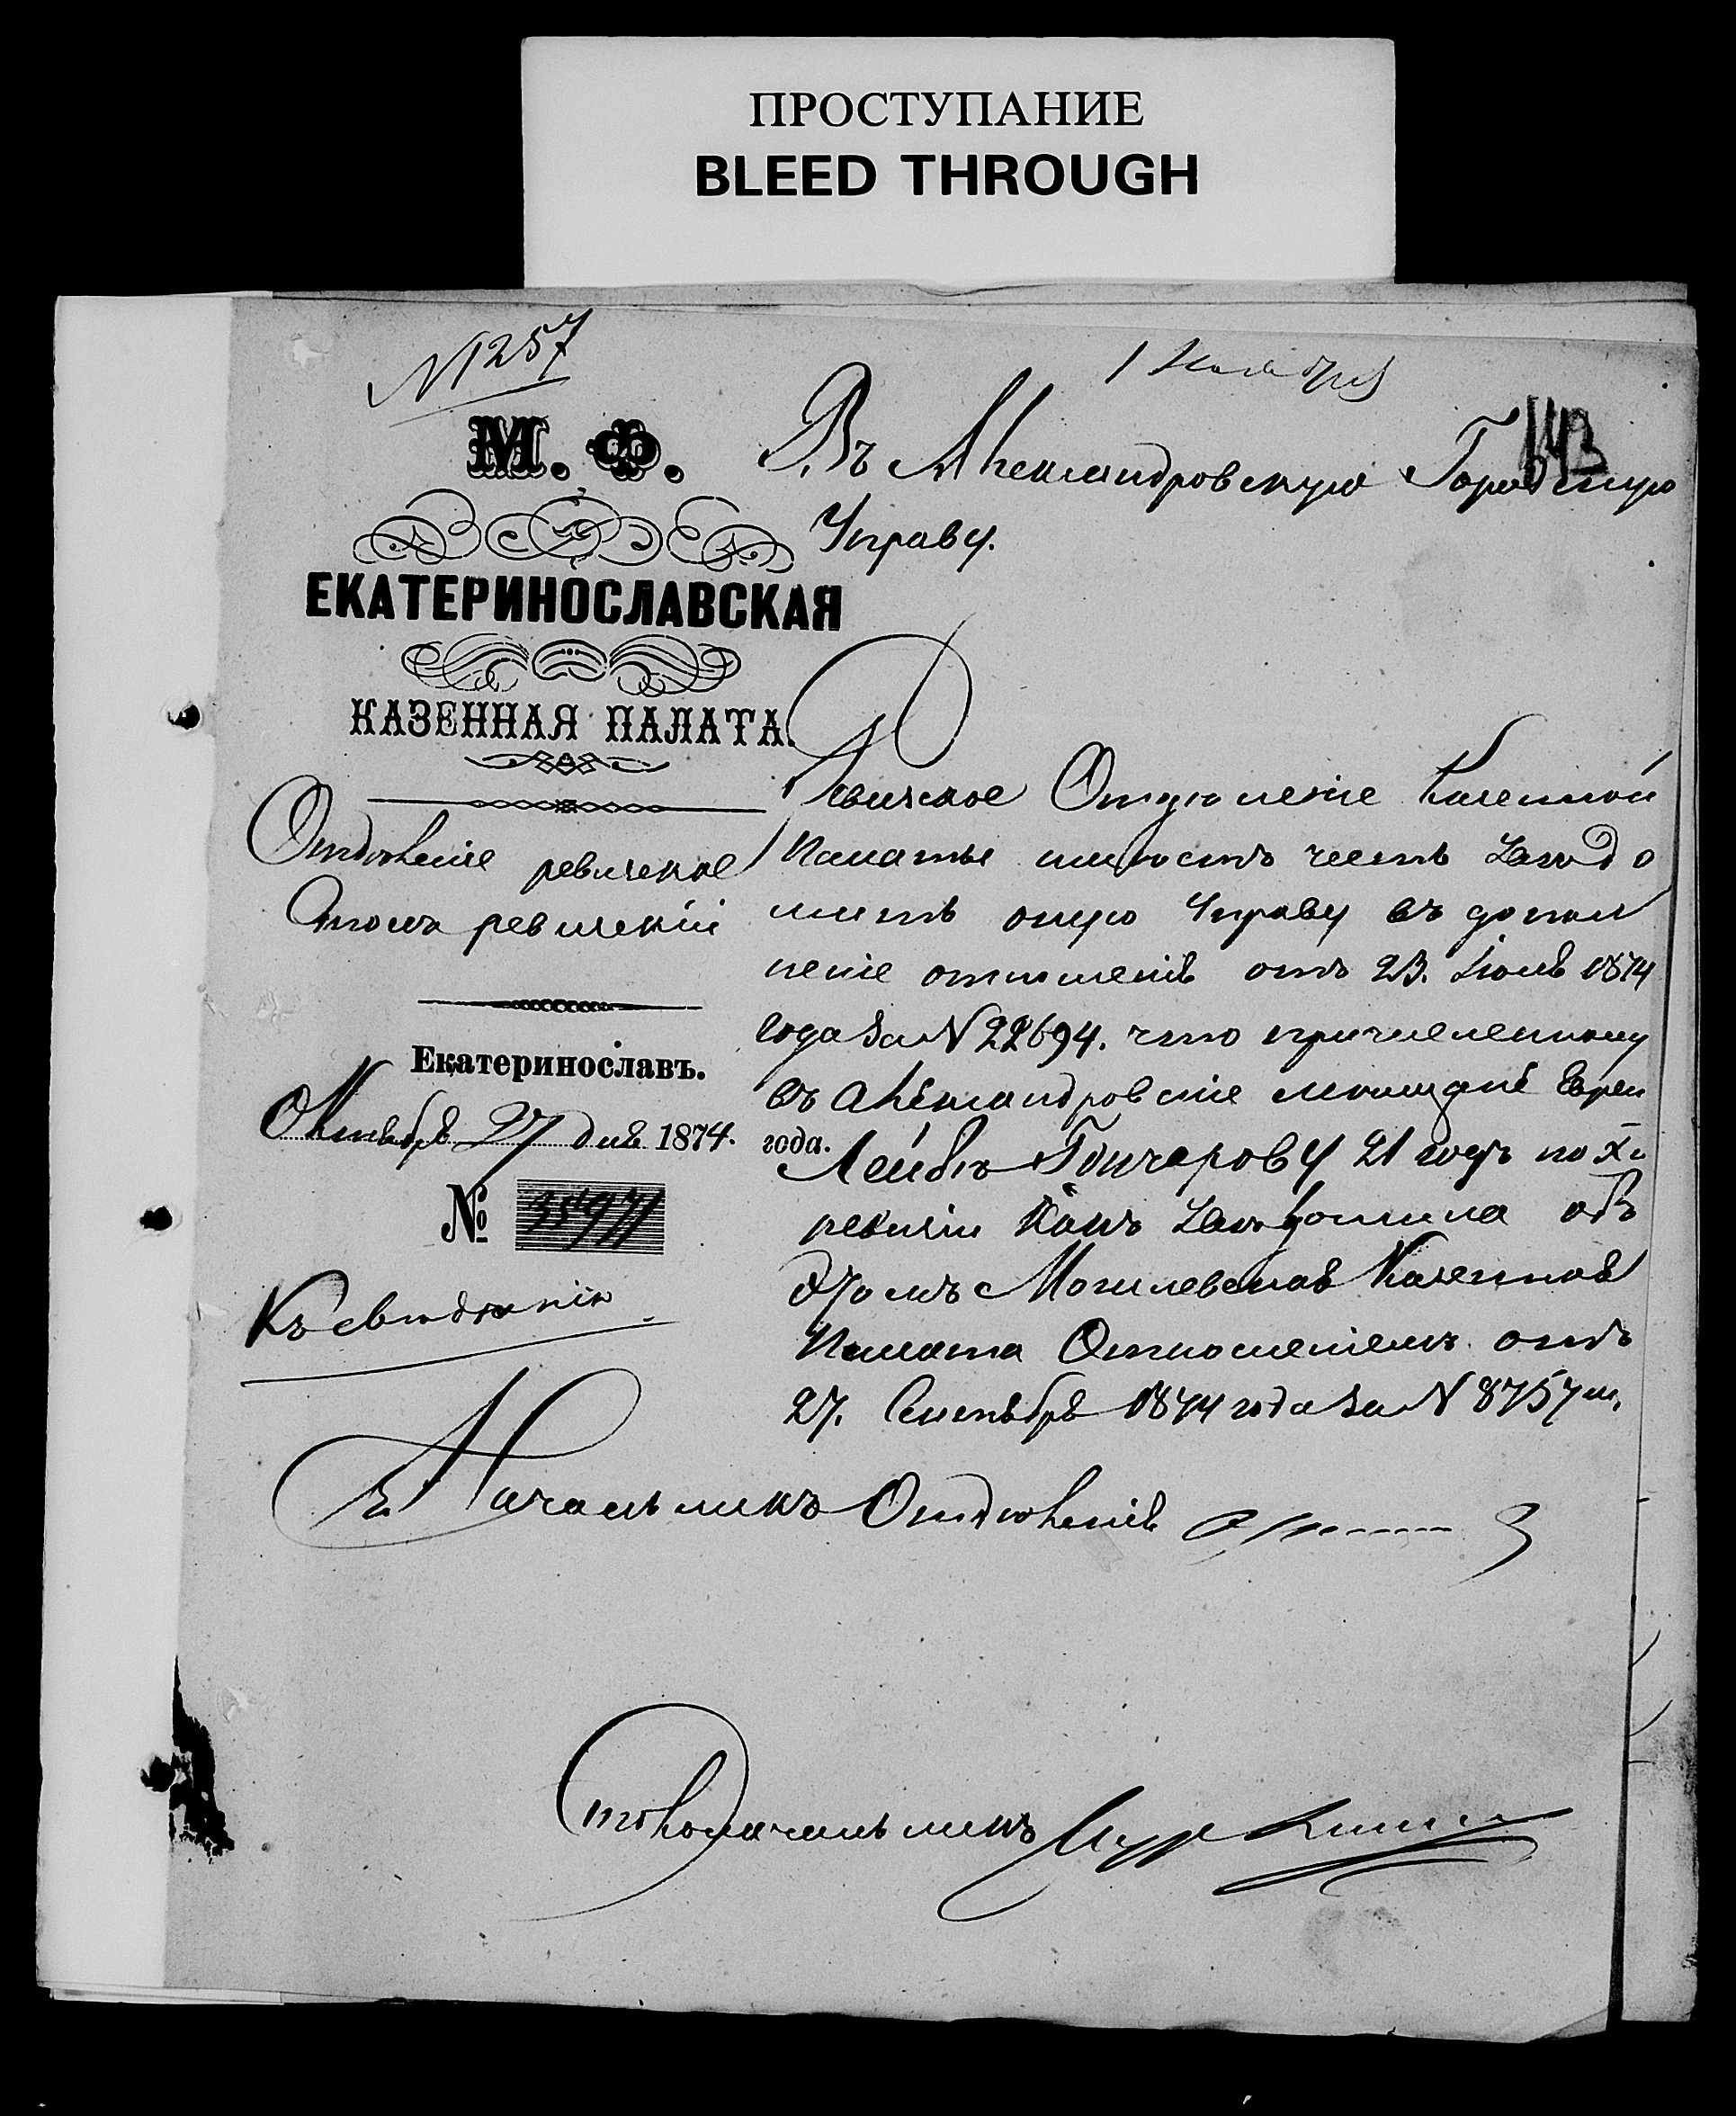 ПРОСТУПАНИЕ
BLEED THROUGH
N 1257
1 Ноября
143
М. Ф.
ЕКАТЕРИНОСЛАВСКАЯ
КАЗЕННАЯ ПАЛАТА.
Отдѣленіе ревизское
Столъ ревизскій
Екатеринославъ.
Октября 27 дня 1874. года.
№ 35971
Къ свѣдѣнію.
Въ Александровскую Городскую
Управу.
Ревизское Отдѣленіе Казенной
Палаты имѣетъ честь увѣдо
мить оную Управу въ допол
неніе отношенія отъ 23. Іюля 1874
года за N 22694. что причисленному
въ Александровскіе мѣщане Еврею
Лейбѣ Гончарову 21 годъ по Х й
ревизіи какъ увѣдомила объ
этомъ Могилевская Казенная
Палата Отношеніемъ отъ
27. Сентября 1874 года за N 8757
Начальникъ Отдѣленія
Столоначальникъ